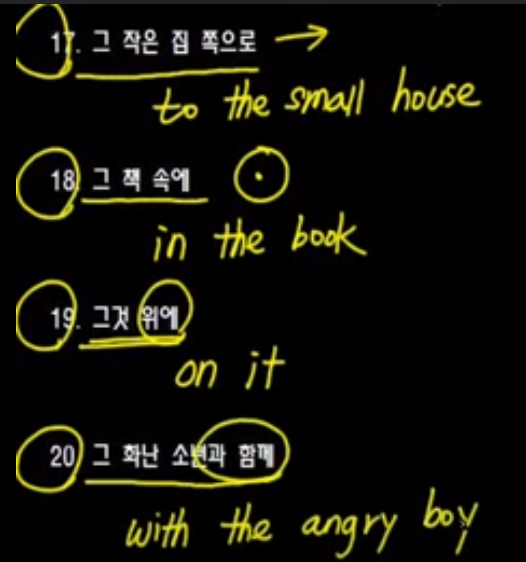 17. 그 작은 집 쪽으로 →
to the small house
18. 그 책 속에
in the book
19. 그것 위에
on it
20 그 화난 소년과 함께
with the angry boy